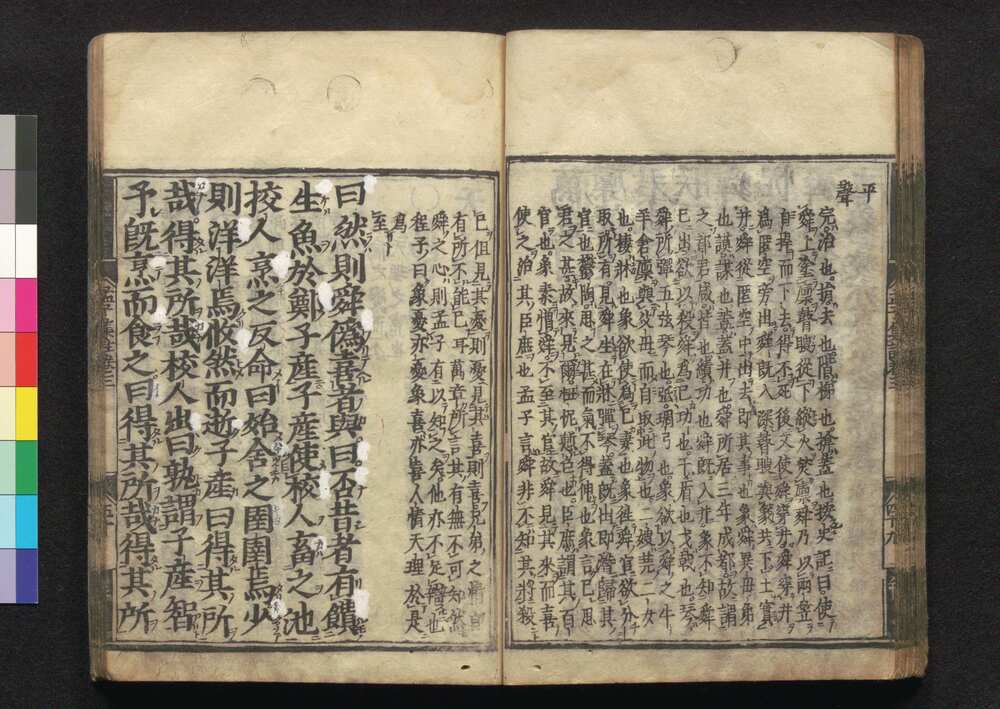 平聲
完治也捐去也階梯也揜蓋也按史記曰使
舜上塗廩瞽瞍從下縱火焚廩舜乃以兩笠
自捍而下去得不死後又使舜穿井舜穿井
爲匿空旁出舜既入深瞽瞍與象共下土實
井舜從匿空中出去即其事也象舜異母弟
也謨謀也蓋蓋井也舜所居三年成都故謂
之都君咸皆也績功也舜既入井象不知舜
已出欲以殺舜爲己功也干盾也戈戟也琴
舜所彈五弦琴也弤琱弓也象欲以舜之牛
羊倉廩與父母而自取此物也二嫂堯二女
也棲牀也象欲使爲己妻也象往舜宮欲分
取所有見舜生在牀彈琴蓋既出即潛歸其
宮也鬱陶思之甚而氣不得伸也象言己思
君之甚故來見爾忸怩慙色也臣庶謂其百
官也象素憎舜不至其宮故舜見其來而喜
使之治其臣庶也孟子言舜非不知其將殺
己但見其憂則憂見其喜則喜兄弟之情自
有所不能已耳萬章所言其有無不可知然
舜之心則孟子有以知之矣他亦不足辯也
程子曰象憂亦憂象喜亦喜人情天理於是
爲至
曰然則舜僞喜者與曰否昔者有饋
生魚於鄭子產子產使校人畜之池
校人烹之反命曰始舍之圉圉焉少
則洋洋焉攸然而逝子產曰得其所
哉得其所哉校人出曰孰謂子產智
予既烹而食之曰得其所哉得其所